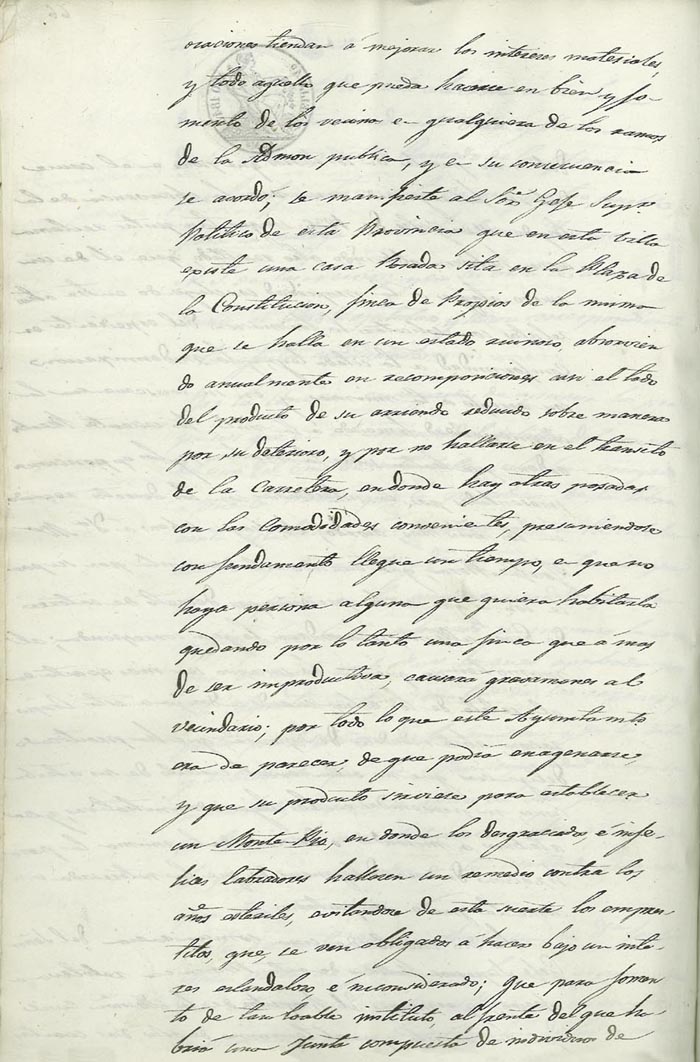 oraciones tiendan á mejorar los intereses materiales,
y todo aquello que pueda hacerse en bien y fo-
mento de los vecinos en qualquiera de los ramos
de la Admon publica, y en su consecuencia
se acordó; se manifieste al Sõr Gefe Supr.
Politico de esta Provincia que en esta Villa
existe una casa Posada sita en la Plaza de
la Constitucion, finca de Propios de la misma
que se halla en un estado ruinoso absorvien
do anualmente en recomposiciones casi el todo
del producto de su arriendo reducido sobre manera
por su deterioro, y por no hallarse en el transito
de la Carretera, en donde hay otras posadas
con las comodidades convenientes, presumiendose
con fundamento llegue un tiempo, en que no
haya persona alguna que quiera habitarla
quedando por lo tanto una finca que á mas
de ser improductiva, causará gravamenes al
vecindario; por todo lo que este Ayuntamto
era de parecer, de que podia enagenarse,
y que su producto sirviese para establecer
un Monte-Pio, en donde los desgraciados, é infe-
lices labradores hallasen un remedio contra los
años esteriles, evitandose de esta suerte los empres-
titos, que se ven obligados á hacer bajo un inte-
res escandaloso é inconsiderado; que para fomen
to de tan loable instituto al frente del que ha
bria una Junta compuesta de individuos de